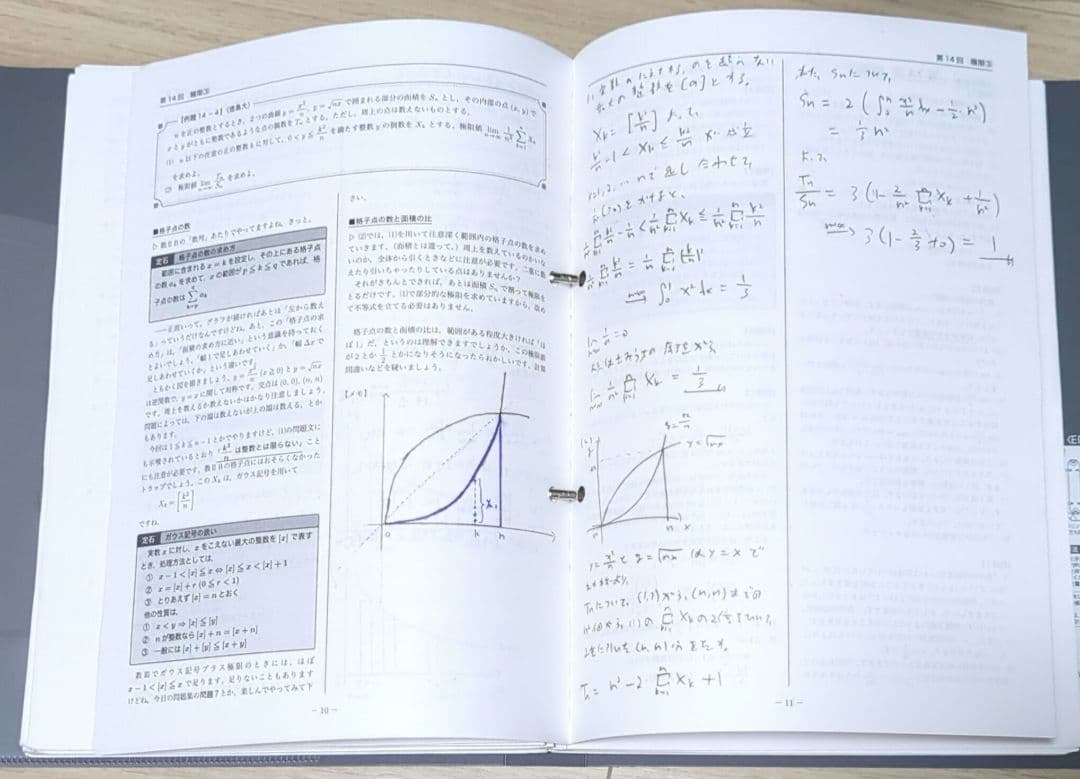 第14回 極限③
【例題14-4】(徳島大)
nを正の整数とするとき、2つの曲線 y=x²/n, y=√nx で囲まれる部分の面積を Sₙ とし、その内部の点 (x, y) で
xとyがともに整数であるような点の個数を Tₙ とする。ただし、周上の点は数えないものとする。
(1) n以下の任意の正の整数kに対して、0<y≦k²/n を満たす整数yの個数を Xₖ とする。極限値 lim n→∞ 1/n² Σ k=1 n Xₖ
を求めよ。
(2) 極限値 lim n→∞ Tₙ/Sₙ を求めよ。
■格子点の数
▷ 数ⅡBの「数列」あたりでやってますよね、きっと。
定石 格子点の数の求め方
範囲に含まれる x=k を設定し、その上にある格子点
の数 aₖ を求めて、xの範囲が p≦k≦q であれば、格
子点の数は Σ k=p q aₖ
──正直いって、グラフが描ければあとは「左から数え
る」っていうだけなんですけどね。あと、この「格子点の求
め方」は、「面積の求め方に近い」という意識を持っておく
とよいでしょう。「幅1で足しあわせていく」か、「幅Δxで
足しあわせていくか」という違いです。
ともかく図を描きましょう。y=x²/n (x≧0) と y=√nx
は逆関数で、y=x に関して対称です。交点は (0, 0), (n, n)
です。周上を数えるか数えないかはかなり注意しましょう。
問題によっては、下の端は数えないが上の端は数える、とか
もあります。
今回は 1≦k≦n−1 とかでやりますけど、(1)の問題文に
も示唆されているとおり「k²/n は整数とは限らない」こと
にも注意が必要です。数ⅡBの格子点にはおそらくなかった
トラップでしょう。この Xₖ は、ガウス記号を用いて
Xₖ=[k²/n]
ですね。
定石 ガウス記号の扱い
実数xに対し、xをこえない最大の整数を [x] で表す
とき、処理方法としては、
① x−1<[x]≦x⇔[x]≦x<[x]+1
② x=[x]+r (0≦r<1)
③ とりあえず [x]=n とおく
他の性質は、
① x<y ⇒ [x]≦[y]
② nが整数なら [x]+n=[x+n]
③ 一般には [x]+[y]≦[x+y]
数Ⅲでガウス記号プラス極限のときには、ほぼ
x−1<[x]≦x で足ります。足りないこともあります
けどね。今日の問題集の問題7とか。楽しんでやってみて下
さい。
■格子点の数と面積の比
▷ (2)では、(1)を用いて注意深く範囲内の格子点の数を求め
ていきます。(面積とは違って、) 周上を数えているのかいな
いのか、全体から引くときなどに注意が必要です。二重に数
えたり引いちゃったりしている点はありませんか?
それがきちんとできれば、あとは面積 Sₙ で割って極限を
とるだけです。(1)で部分的な極限を求めていますから、改め
て不等式を立てる必要はありません。
格子点の数と面積の比は、範囲がある程度大きければ「ほ
ぼ1」だ、というのは理解できますでしょうか。この極限値
が2とか 1/2 とかになりそうになったらおかしいです。計算
間違いなどを疑いましょう。
【メモ】
0 k n
Xₖ
− 10 −
第14回 極限③
最大の整数を[a]とする。
Xₖ=[k²/n] よって、
k²/n −1 < Xₖ ≦ k²/n が成立
k=1,2,…nで足し合わせて、
= 1/n Σ k=1 n (k/n)²
n→∞ → ∫₀¹ x²dx = 1/3
lim n→∞ 1/n = 0
lim n→∞ 1/n² Σ k=1 n Xₖ = 1/3
(2)
y=x²/n
y=√nx
n
n x
y=x²/n と y=√nx は y=x で
対称より、
Tₙについて、(1,1)から(n,n)までの
Tₙ = n² − 2 Σ k=1 n Xₖ + 1
また、Sₙについて、
Sₙ = 2(∫₀ⁿ x²/n dx − 1/2 n²)
= 1/3 n²
よって
Tₙ/Sₙ = 3(1 − 2/n² Σ k=1 n Xₖ + 1/n²)
n→∞ → 3(1 − 2/3 + 0) = 1
− 11 −